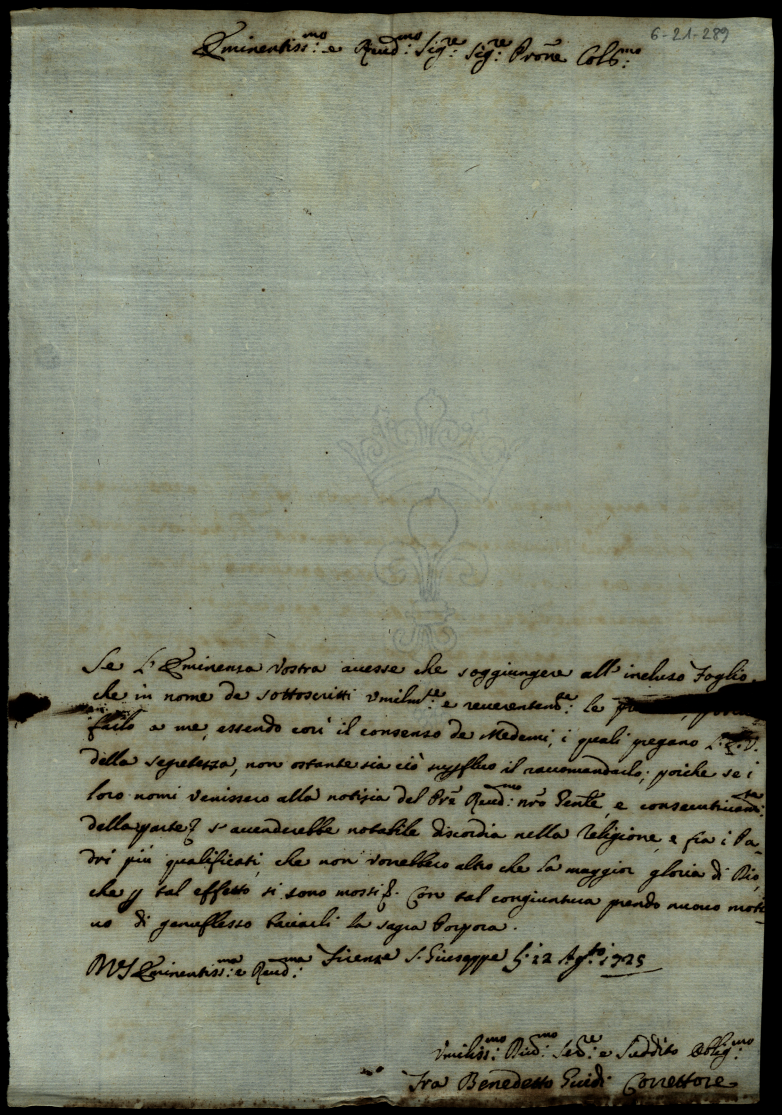 6-21-289
Eminentiss:mo e Reud:mo Sig:re Sig:re Prone Col:mo
Se L'Eminenza Vostra auesse che soggiungere all'incluso Foglio,
che in nome de sottoscritti vmilm:te e reuerentem:te le
farlo a me, essendo cosi il consenso de Medemi, i quali pregano L'E.V.
della segretezza, non ostante sia ciò supfluo il raccomandarlo; poiche se i
loro nomi venissero alla notizia del Pre Reud:mo nro Genle, e consecutiuam:te
della parte, s'accenderebbe notabile discordia nella Religione e fra i Pa-
dri più qualificati, che non vorrebbero altro che la maggior gloria di Dio,
che p tal effetto si sono mossi. Con tal congiuntura prendo nuouo moti-
uo di genuflesso baciarli la sagra Porpora.
Eminentiss:ma e Reud:ma Firenze S. Giuseppe li 22 Ag:to 1725
Vmiliss:mo Diu:mo Ser:re e Suddito Oblig:mo
Fra Benedetto Guidi Correttore